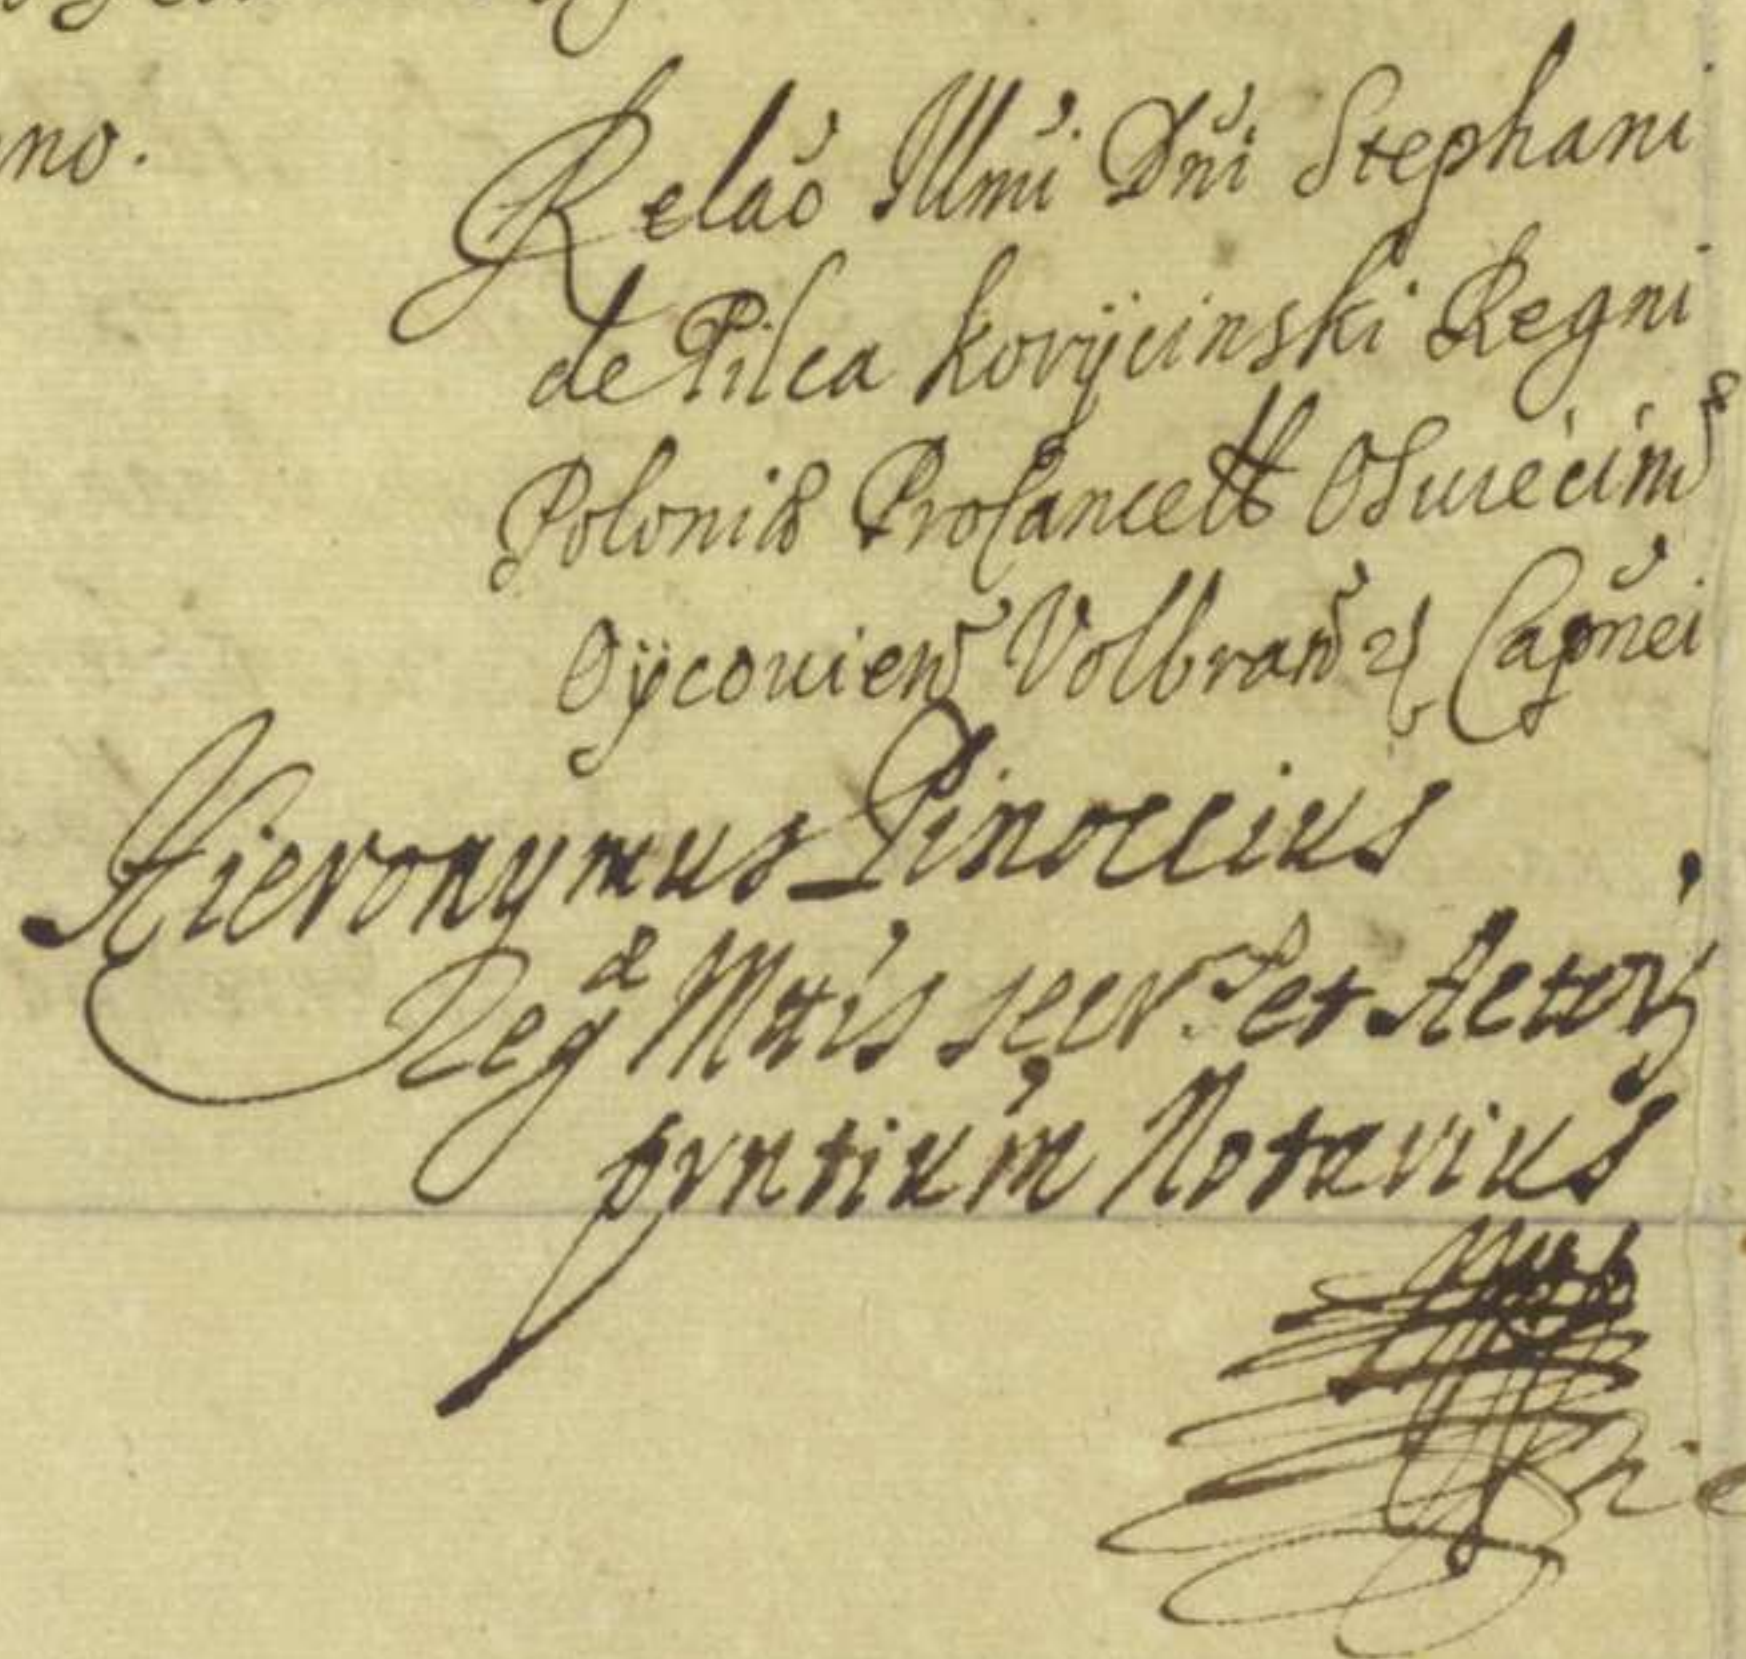 no.
Relaõ Illmi Dñi Stephani
de Pilca Koryĉinski Regni
Poloniæ ProCancell Osuiecims
Oÿcouien Volbran et Capñei
Hieronymus Pinoccius
Regæ Mtis secr. et Actor
pñtium Notarius